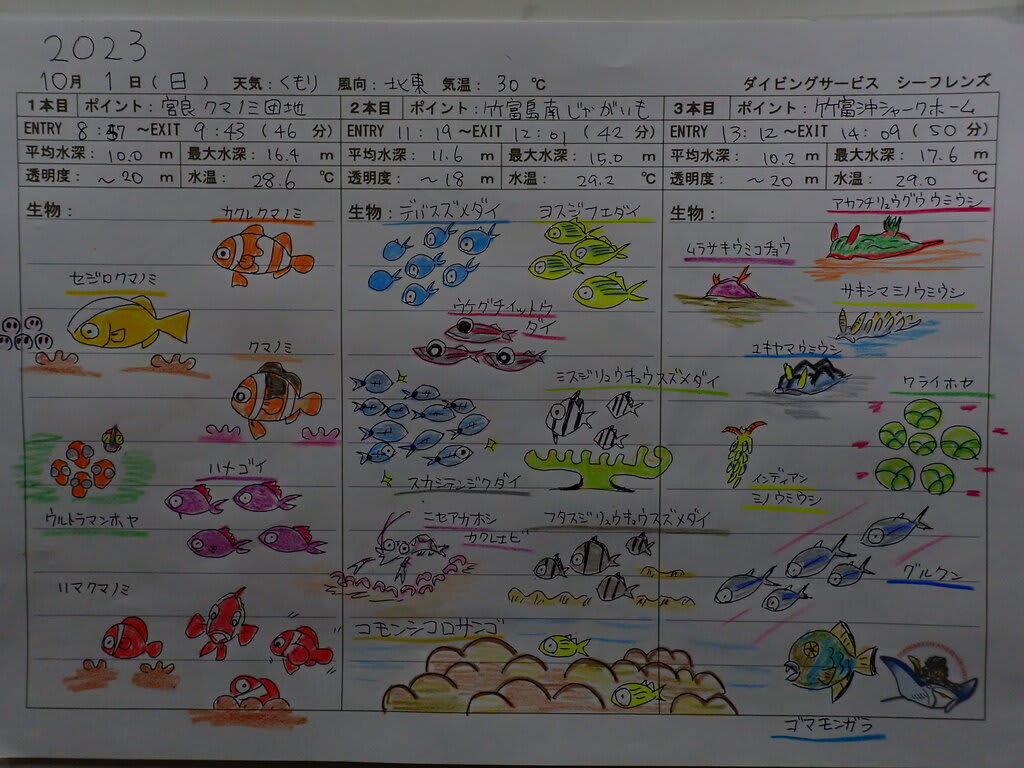 2023
10月 1日(日) 天気:くもり 風向:北東 気温:30℃ ダイビングサービス シーフレンズ
1本目 ポイント:宮良クマノミ団地
ENTRY 8:57~EXIT 9:43(46分)
平均水深:10.0m 最大水深:16.4m
透明度:~20m 水温:28.6℃
生物:
カクレクマノミ
セジロクマノミ
クマノミ
ハナゴイ
ウルトラマンホヤ
ハマクマノミ
2本目 ポイント:竹富島南じゃがいも
ENTRY 11:19~EXIT 12:01(42分)
平均水深:11.6m 最大水深:15.0m
透明度:~18m 水温:29.2℃
生物:
デバスズメダイ
ヨスジフエダイ
ウケグチイットウ
ダイ
ミスジリュウキュウスズメダイ
スカシテンジクダイ
ニセアカホシ
カクレエビ
フタスジリュウキュウスズメダイ
コモンシコロサンゴ
3本目 ポイント:竹富沖シャークホーム
ENTRY 13:12~EXIT 14:09(50分)
平均水深:10.2m 最大水深:17.6m
透明度:~20m 水温:29.0℃
生物:
アカフチリュウグウウミウシ
ムラサキウミコチョウ
サキシマミノウミウシ
ユキヤマウミウシ
ワライホヤ
インディアン
ミノウミウシ
グルクン
ゴマモンガラ